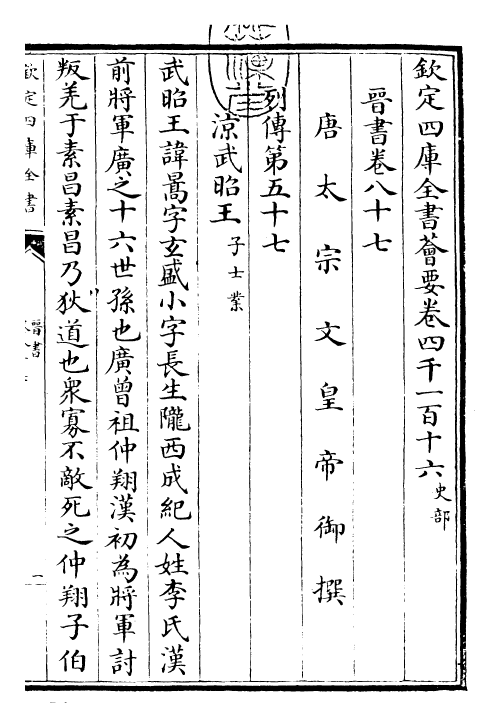 欽定四庫全書薈要卷四千一百十六 史部
晉書卷八十七
唐太宗文皇帝御撰
列傳第五十七
涼武昭王 子士業
武昭王諱暠字玄盛小字長生隴西成紀人姓李氏漢
前將軍廣之十六世孫也廣曾祖仲翔漢初為將軍討
叛羌于素昌素昌乃狄道也衆寡不敵死之仲翔子伯
欽定四庫全書
晉書
一